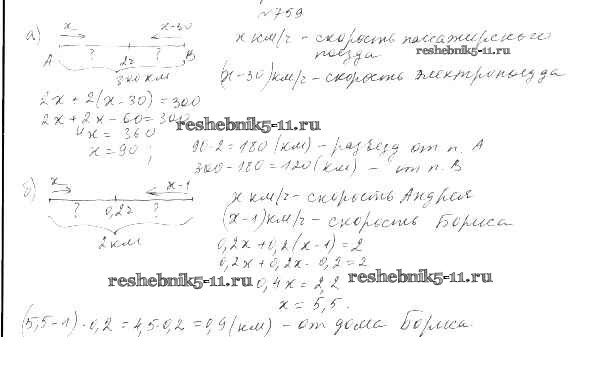 №759
а) x x-30 x км/ч - скорость пассажирского
поезда
reshebnik5-11.ru
? 2ч ?
A B
300 км (x-30) км/ч - скорость электропоезда
2x + 2(x-30) = 300
2x + 2x - 60 = 300
reshebnik5-11.ru
4x = 360
x = 90 ; 90·2 = 180 (км) - разъезд от п. A
300 - 180 = 120 (км) - от п. B
б) x x-1 x км/ч - скорость Андрея
? 0,2ч ? (x-1) км/ч - скорость Бориса
2 км 0,2x + 0,2(x-1) = 2
0,2x + 0,2x - 0,2 = 2
reshebnik5-11.ru 0,4x = 2,2 reshebnik5-11.ru
x = 5,5.
(5,5-1)·0,2 = 4,5·0,2 = 0,9 (км) - от дома Бориса.